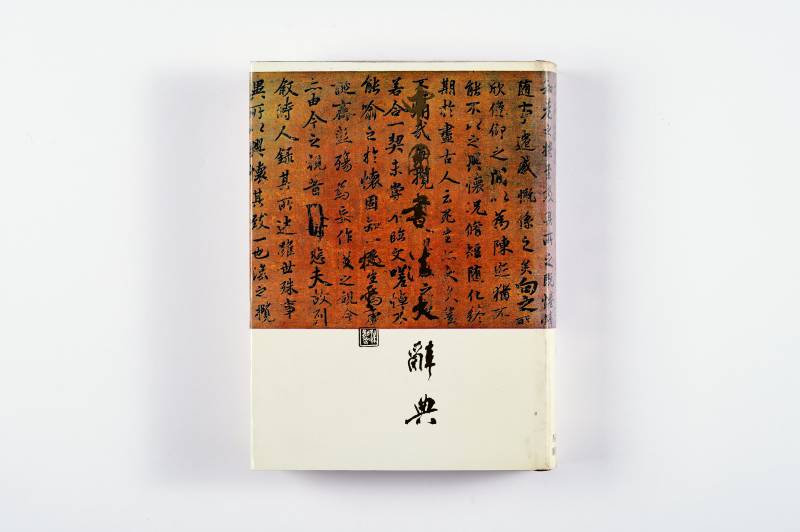 知老之將至及其所之既惓情
隨事遷感慨係之矣向之所
欣俛仰之間以為陳迹猶不
能不以之興懷況脩短隨化終
期於盡古人云死生亦大矣豈
中國書法大辭典
若合一契未嘗不臨文嗟悼不
能喻之於懷固知一死生為虛
誕齊彭殤為妄作後之視今
亦由今之視昔悲夫故列
敘時人錄其所述雖世殊事
異所以興懷其致一也後之攬